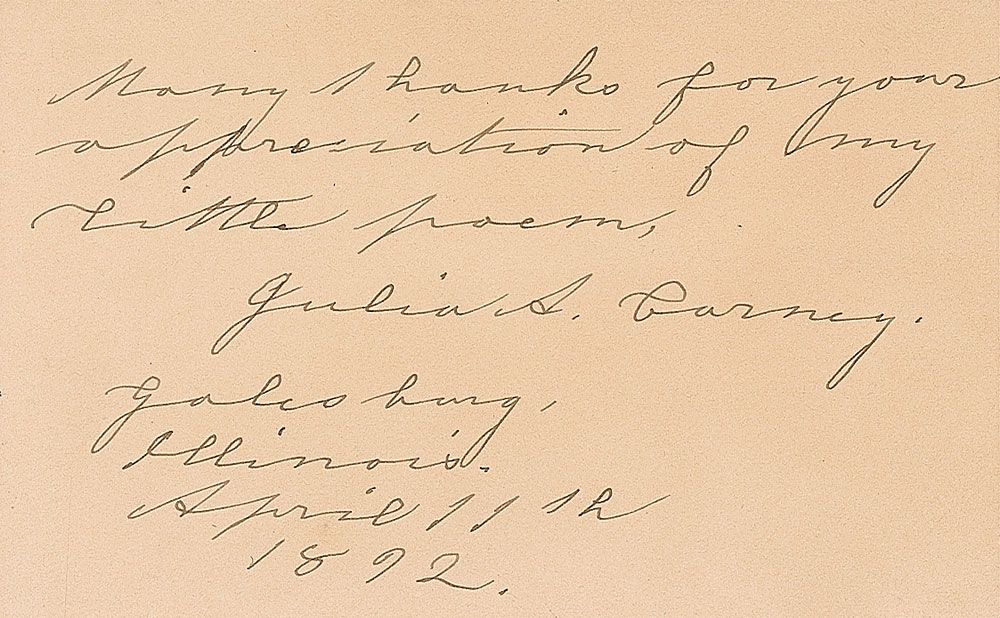 Many thanks for your
appreciation of my
little poem,
Julia A. Carney.
Galesburg,
Illinois.
April 11th
1892.